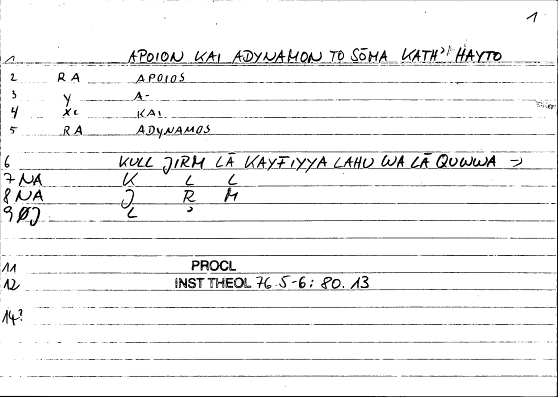 1
1 APOION KAI ADYNAMON TO SŌMA KATH' HAYTO
2 RA APOIOS
3 y A-
4 xc KAI
5 RA ADYNAMOS
6 KULL JIRM LĀ KAYFIYYA LAHU WA LĀ QUWWA
7 NA K L L
8 NA J R M
9 ØJ L '
11 PROCL
12 INST THEOL 76.5-6; 80.13
14?